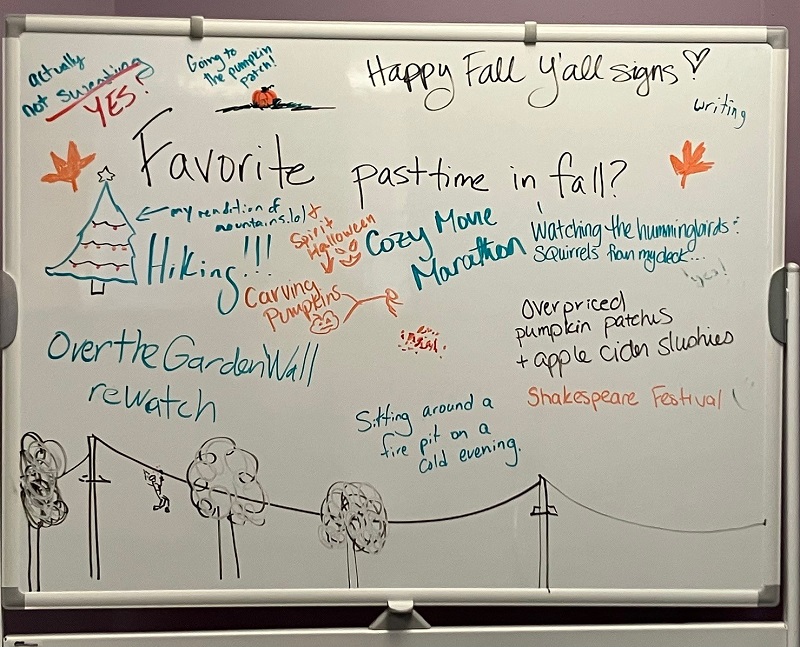 actually
not sweating
YES!
Going to
the pumpkin
patch!
Happy Fall Y'all signs
writing
Favorite pasttime in fall?
my rendition of
mountains.lol
Hiking!!!
Spirit
Halloween
Carving
Pumpkins
Cozy Movie
Marathon
Watching the hummingbirds &
squirrels from my deck...
yes!
Overpriced
pumpkin patches
+ apple cider slushies
Shakespeare Festival
Over the Garden Wall
rewatch
Sitting around a
fire pit on a
cold evening.